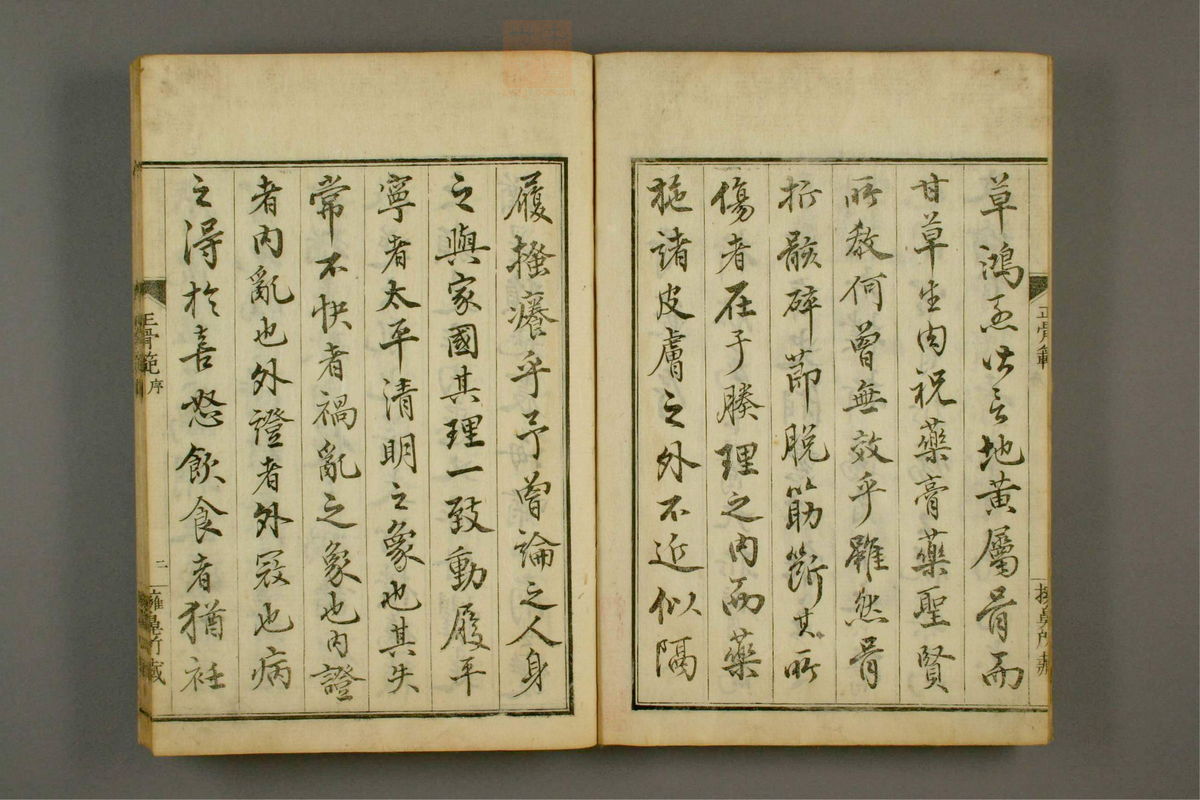 正骨範
草鴻烈皆言地黃屬骨而
甘草生肉祝藥膏藥聖賢
所教何曾無效乎雖然骨
折骸碎節脫筋斷其所
傷者在于腠理之內而藥
施諸皮膚之外不近似隔
履搔癢乎予曾論之人身
之與家國其理一致動履平
寧者太平清明之象也其失
常不快者禍亂之象也內證
者內亂也外證者外寇也病
之得於喜怒飲食者猶衽
正骨範 序
二
擁鼻 藏